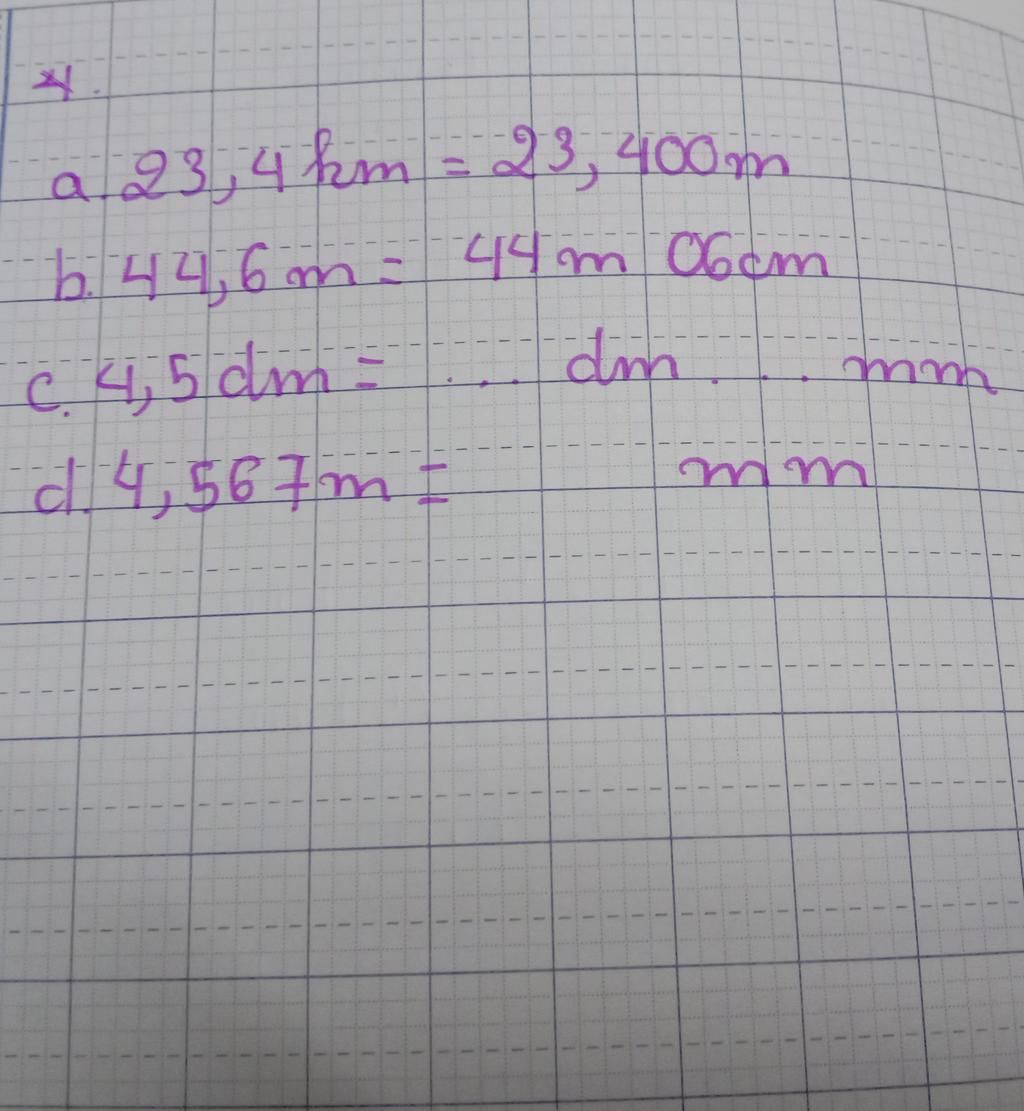 4.
a. 23,4 km = 23,400m
b. 44,6 m = 44 m 06 cm
c. 4,5 dm = ... dm ... mm
d. 4,567 m = mm